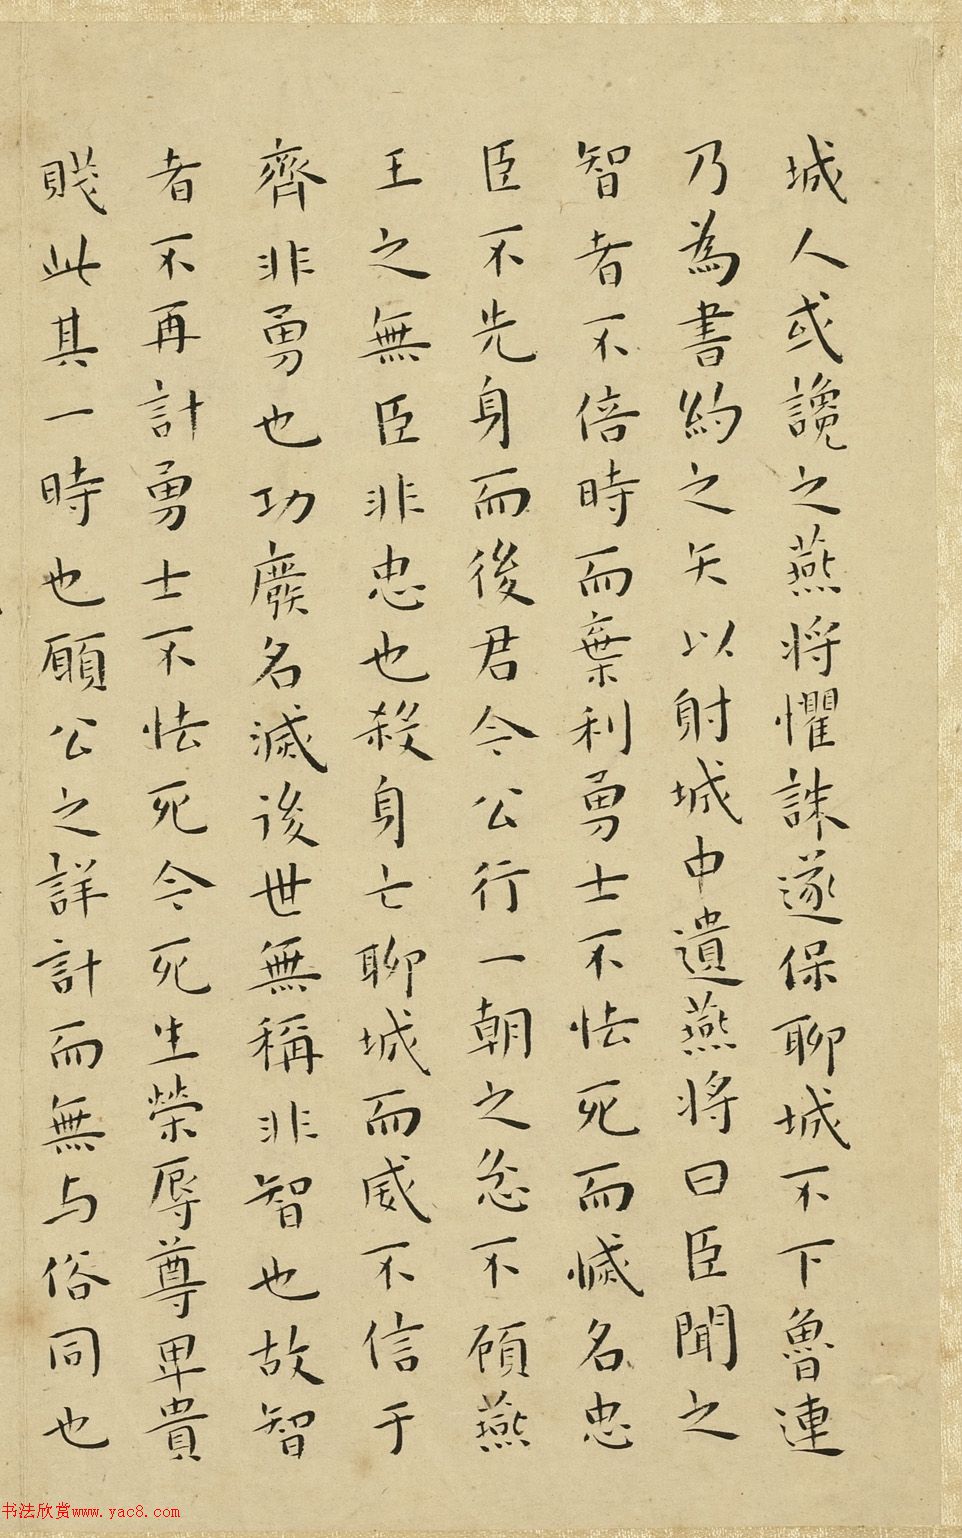 城人或讒之燕将懼誅遂保聊城不下魯連
乃為書約之矢以射城中遺燕将曰臣聞之
智者不倍時而棄利勇士不怯死而滅名忠
臣不先身而後君今公行一朝之忿不顧燕
王之無臣非忠也殺身亡聊城而威不信于
齊非勇也功廢名滅後世無稱非智也故智
者不再計勇士不怯死今死生榮辱尊卑貴
賤此其一時也願公之詳計而無与俗同也
书法欣赏www.yac8.com